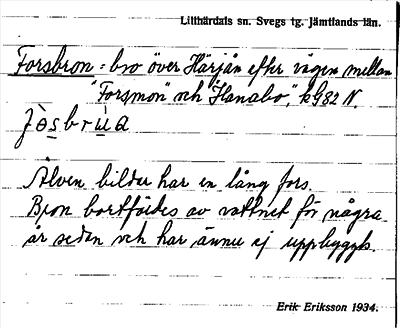 Lillhärdals sn. Svegs tg. Jämtlands län.
Forsbron = bro över Härjån efter vägen mellan
"Forsmon" och "Hanabo", kG82 N.
fòs̲brùa
Älven bildar har en lång fors.
Bron bortfördes av vattnet för några
år sedan och har ännu ej uppbyggts.
Erik Eriksson 1934.